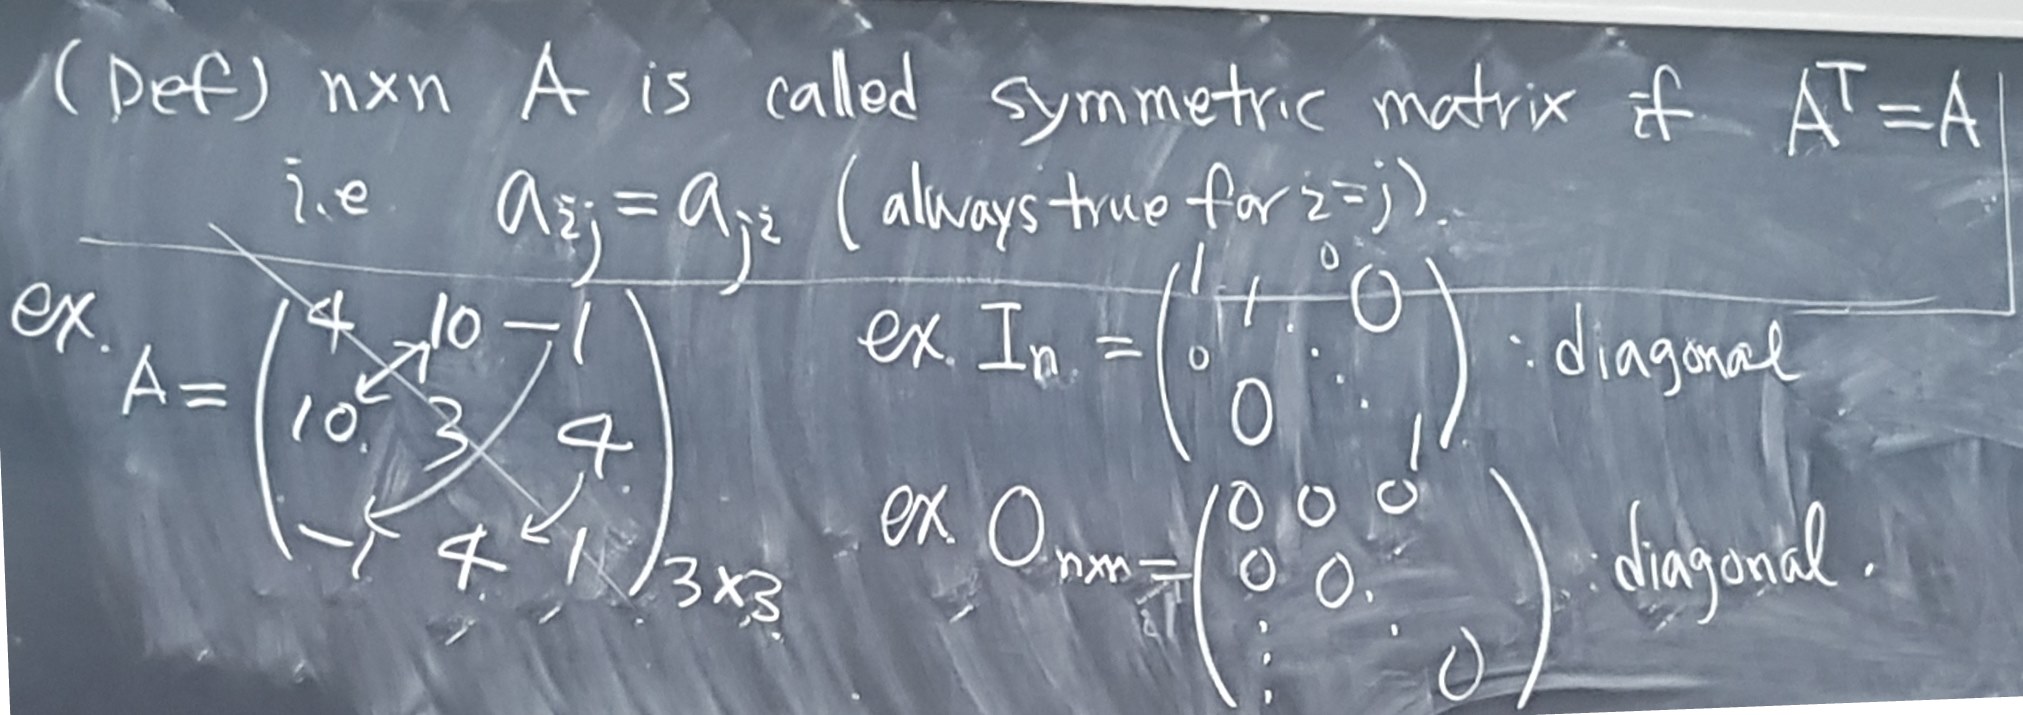 (Def) n×n A is called symmetric matrix if Aᵀ=A
i.e. aᵢⱼ = aⱼᵢ (always true for i=j).
ex. A = ( 4 10 −1
10 3 4
−1 4 1 ) 3×3
ex. Iₙ = ( 1 0 0
0 1 ⋱
0 1 ) : diagonal
ex. O n×n = ( 0 0 0
0 0 .
⋮ ⋱ 0 ) : diagonal.